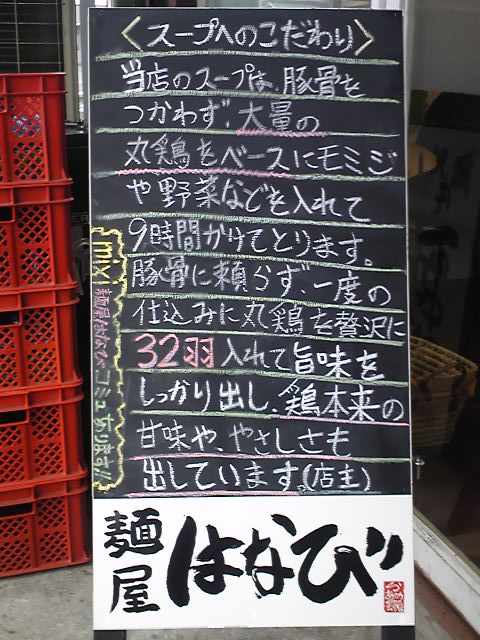 〈スープへのこだわり〉
当店のスープは、豚骨を
つかわず、大量の
丸鶏をベースにモミジ
や野菜などを入れて
9時間かけてとります。
豚骨に頼らず、一度の
仕込みに丸鶏を贅沢に
32羽入れて旨味を
しっかり出し、鶏本来の
甘味や、やさしさも
出しています。(店主)
mixi 麺屋はなびコミュあります!!
麺屋
はなび